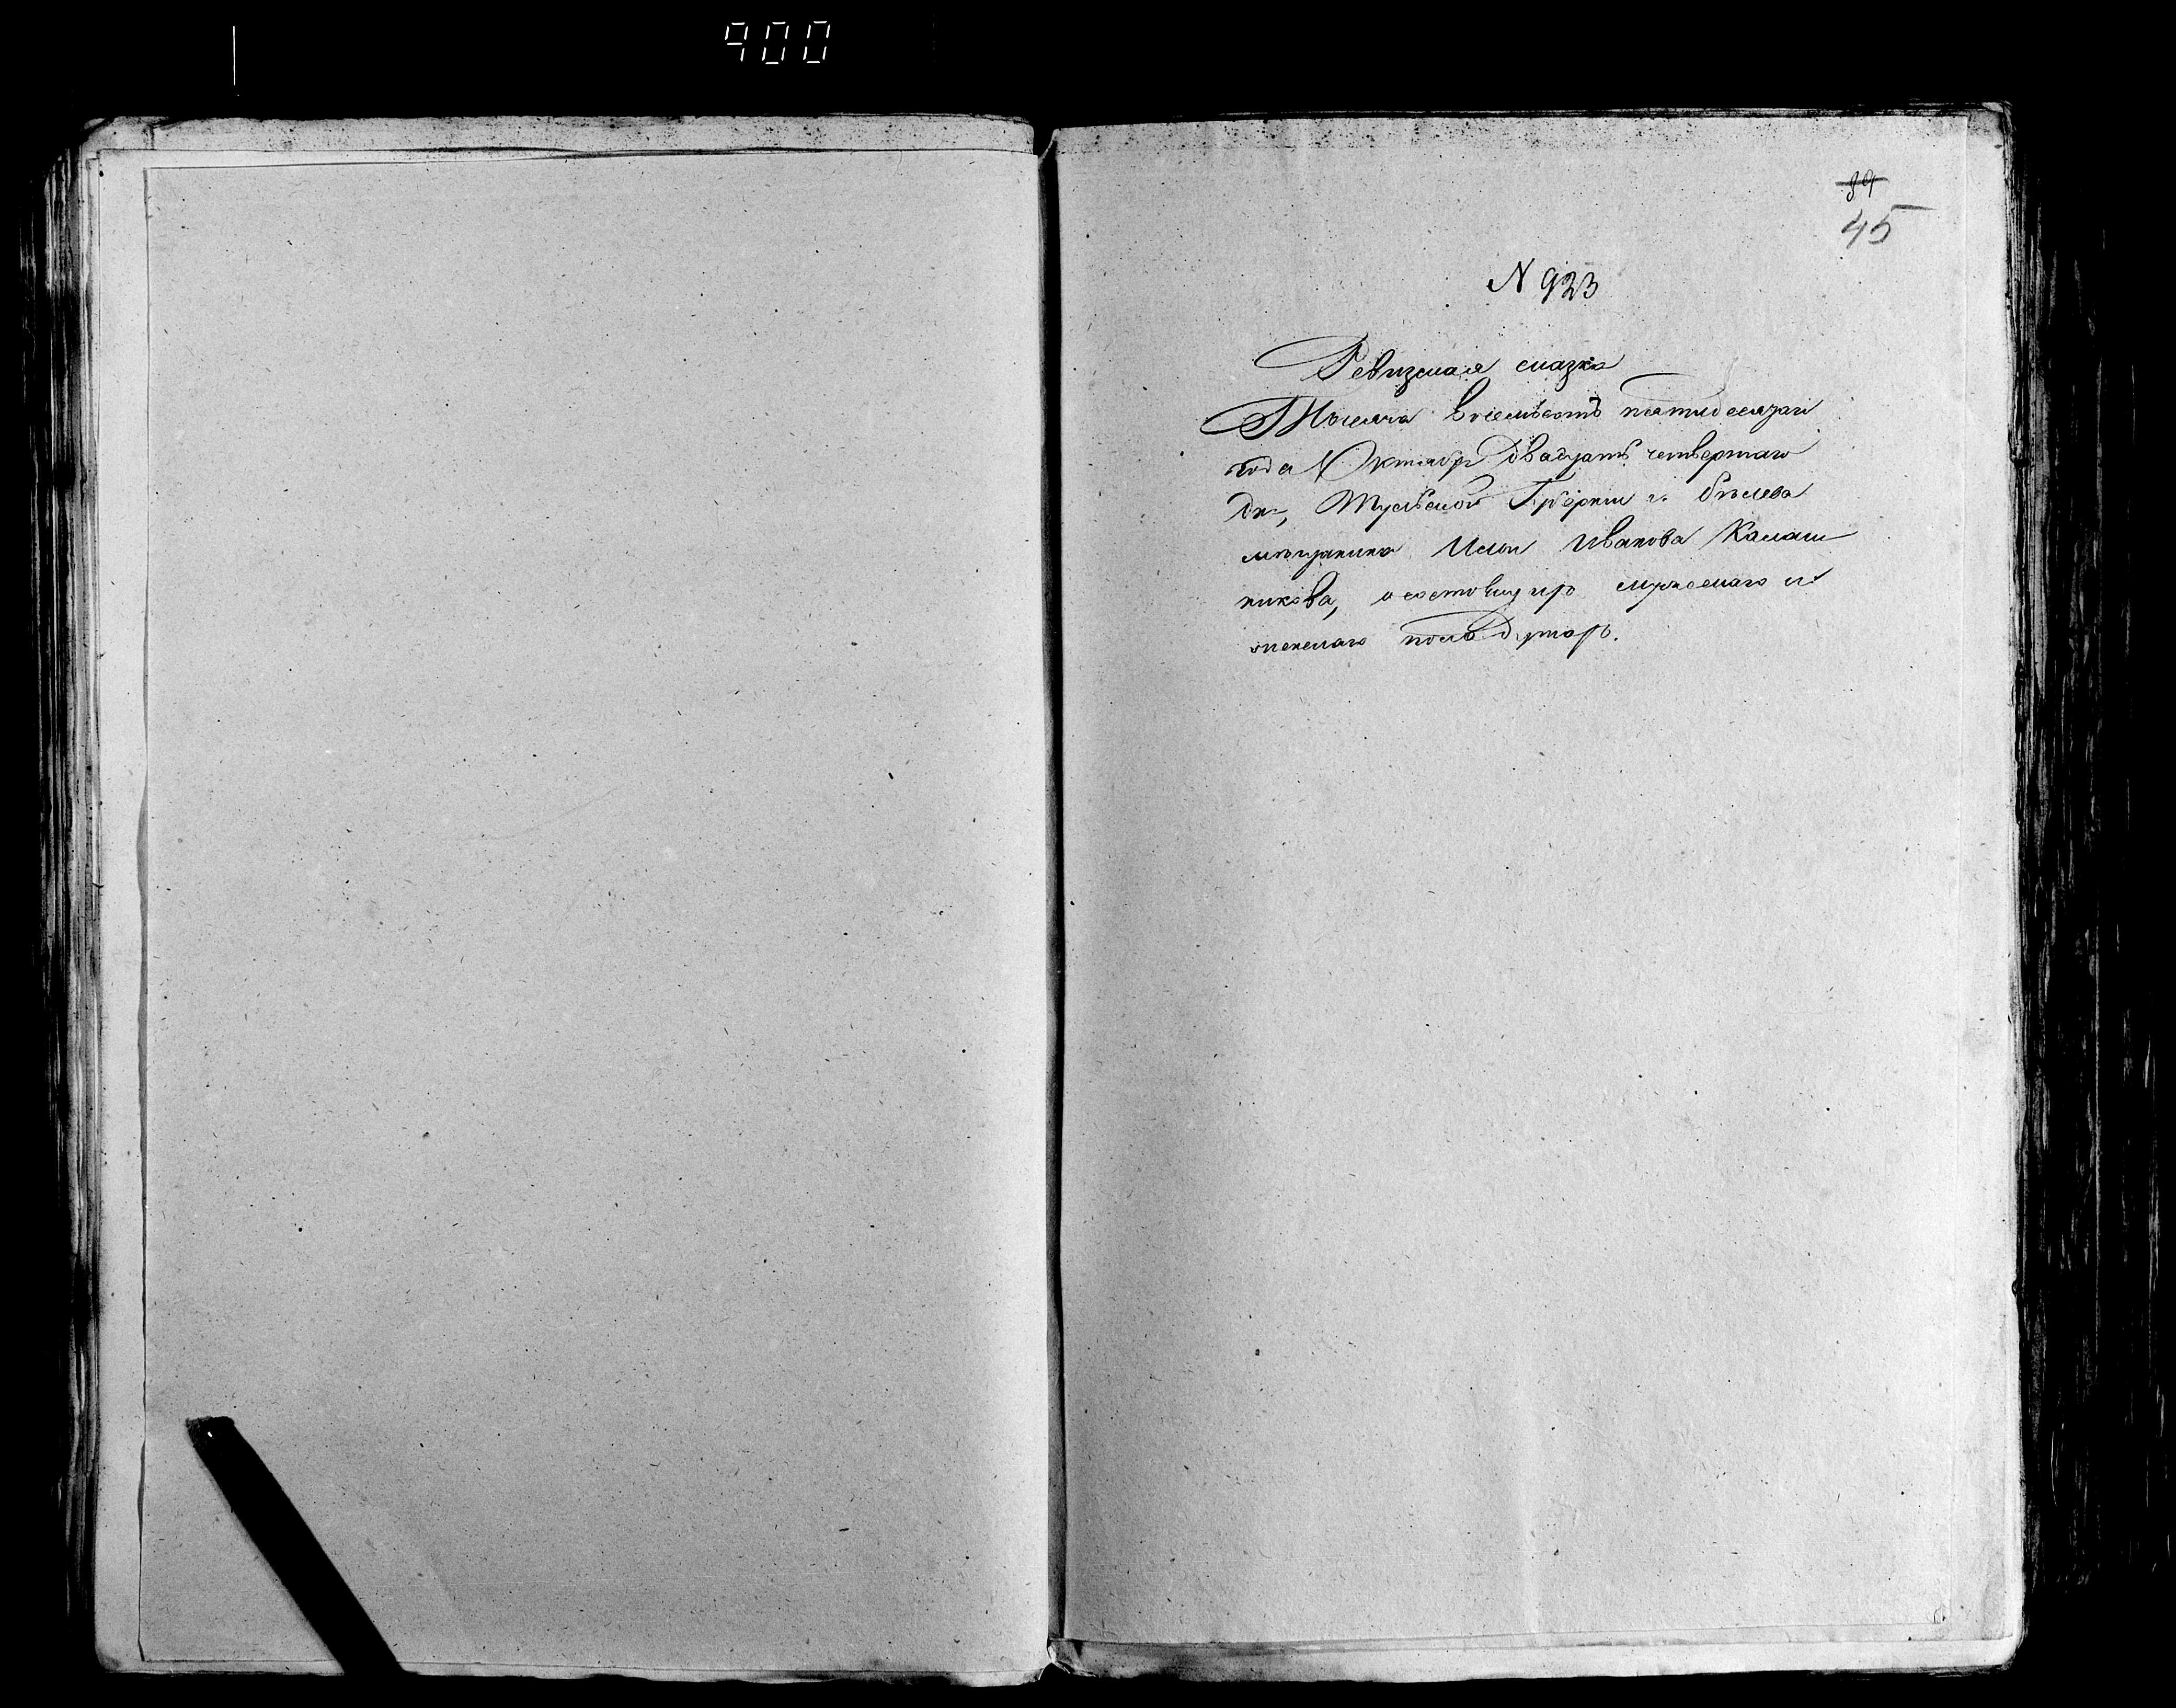 900
39
45
N 923
Ревизская сказка
Тысяча восемьсотъ пятидесятаго
года Октября двадцать четвертаго
дня, Тульской Губерніи г. Бѣлева
мѣщанина Ильи Иванова Калаш
никова, о состоящихъ мужескаго и
женскаго пола душахъ.